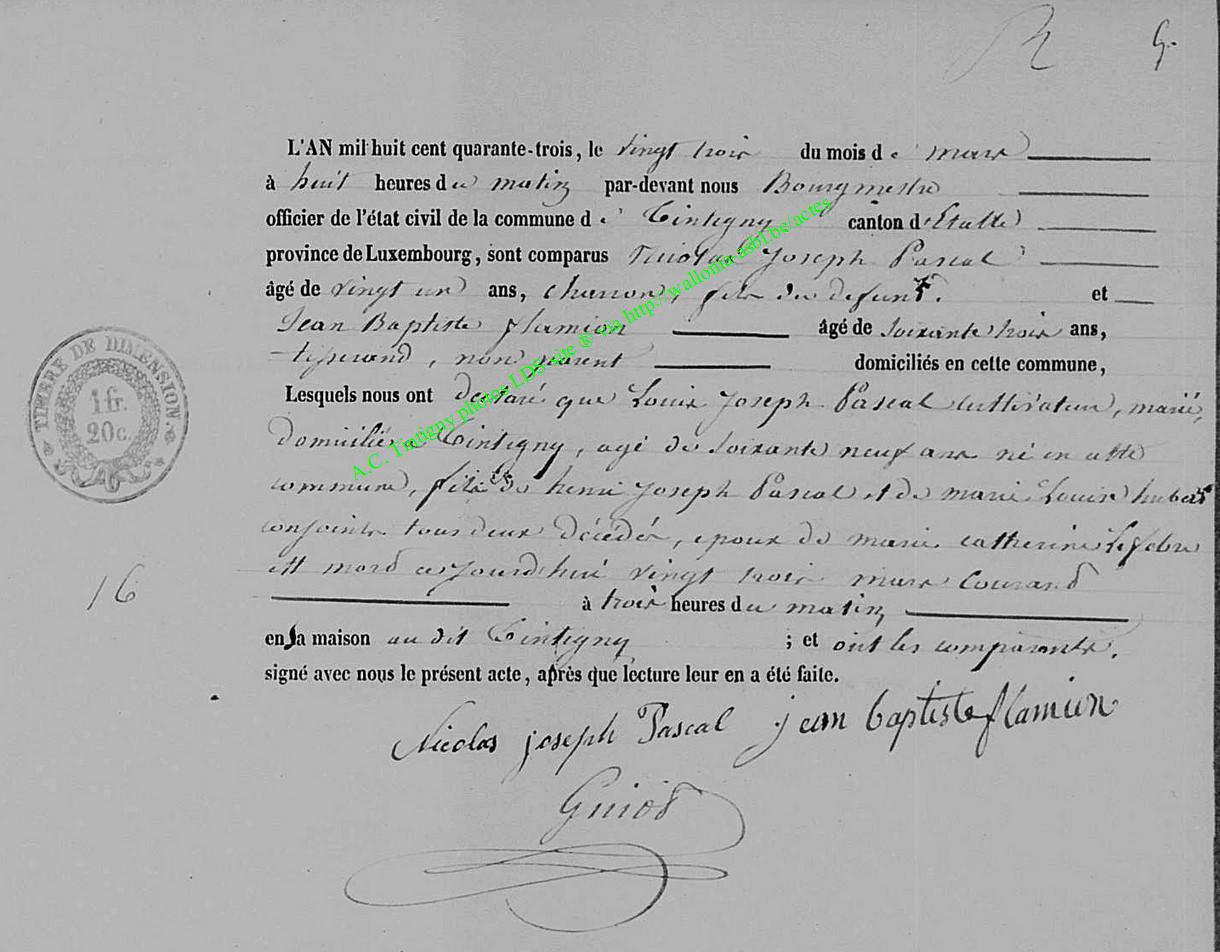 R 9.
L'AN mil huit cent quarante-trois, le vingt trois du mois de mars
à huit heures du matin par-devant nous Bourgmestre
officier de l'état civil de la commune de Tintigny canton d'Etalle
province de Luxembourg, sont comparus Nicolas Joseph Pascal
âgé de vingt un ans, charron, fils du defunt. et
Jean Baptiste flamion âgé de soixante trois ans,
tisserand, non parent domiciliés en cette commune,
Lesquels nous ont declaré que Louis Joseph Pascal cultivateur, marié,
domicilié a Tintigny, agé de soixante neuf ans né en cette
commune, fils de henri Joseph Pascal et de marie Louise hubert
conjoints tous deux décédés, epoux de marie catherine Lefebre
est mord cejourd'hui vingt trois mars Courand
à trois heures du matin
en sa maison au dit Tintigny ; et ont les comparants.
signé avec nous le présent acte, après que lecture leur en a été faite.
Nicolas joseph Pascal jean baptiste flamion
Guiot
TIMBRE DE DIMENSION.
1 fr.
20c.
16
A.C. Tintigny photos LDS-site ® via http://wallonia-asbl.be/actes